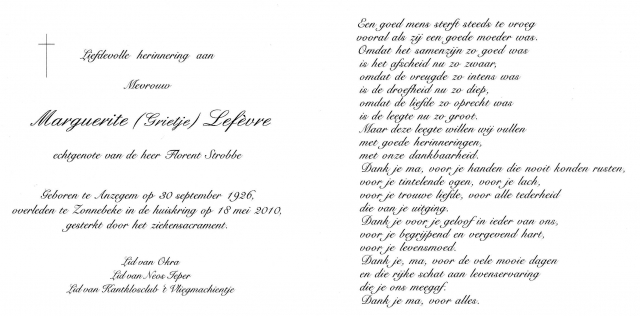 Liefdevolle herinnering aan
Mevrouw
Marguerite (Grietje) Lefèvre
echtgenote van de heer Florent Strobbe
Geboren te Anzegem op 30 september 1926,
overleden te Zonnebeke in de huiskring op 18 mei 2010,
gesterkt door het ziekensacrament.
Lid van Okra
Lid van Neos Ieper
Lid van Kantklosclub 't Vliegmachientje
Een goed mens sterft steeds te vroeg
vooral als zij een goede moeder was.
Omdat het samenzijn zo goed was
is het afscheid nu zo zwaar,
omdat de vreugde zo intens was
is de droefheid nu zo diep,
omdat de liefde zo oprecht was
is de leegte nu zo groot.
Maar deze leegte willen wij vullen
met goede herinneringen,
met onze dankbaarheid.
Dank je ma, voor je handen die nooit konden rusten,
voor je tintelende ogen, voor je lach,
voor je trouwe liefde, voor alle tederheid
die van je uitging.
Dank je voor je geloof in ieder van ons,
voor je begrijpend en vergevend hart,
voor je levensmoed.
Dank je, ma, voor de vele mooie dagen
en die rijke schat aan levenservaring
die je ons meegaf.
Dank je ma, voor alles.